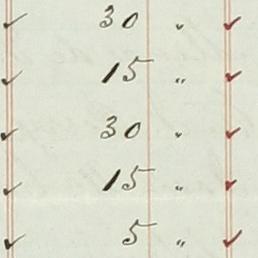 ✓ 30 " ✓
✓ 15 " ✓
✓ 30 " ✓
✓ 15 " ✓
✓ 5 " ✓